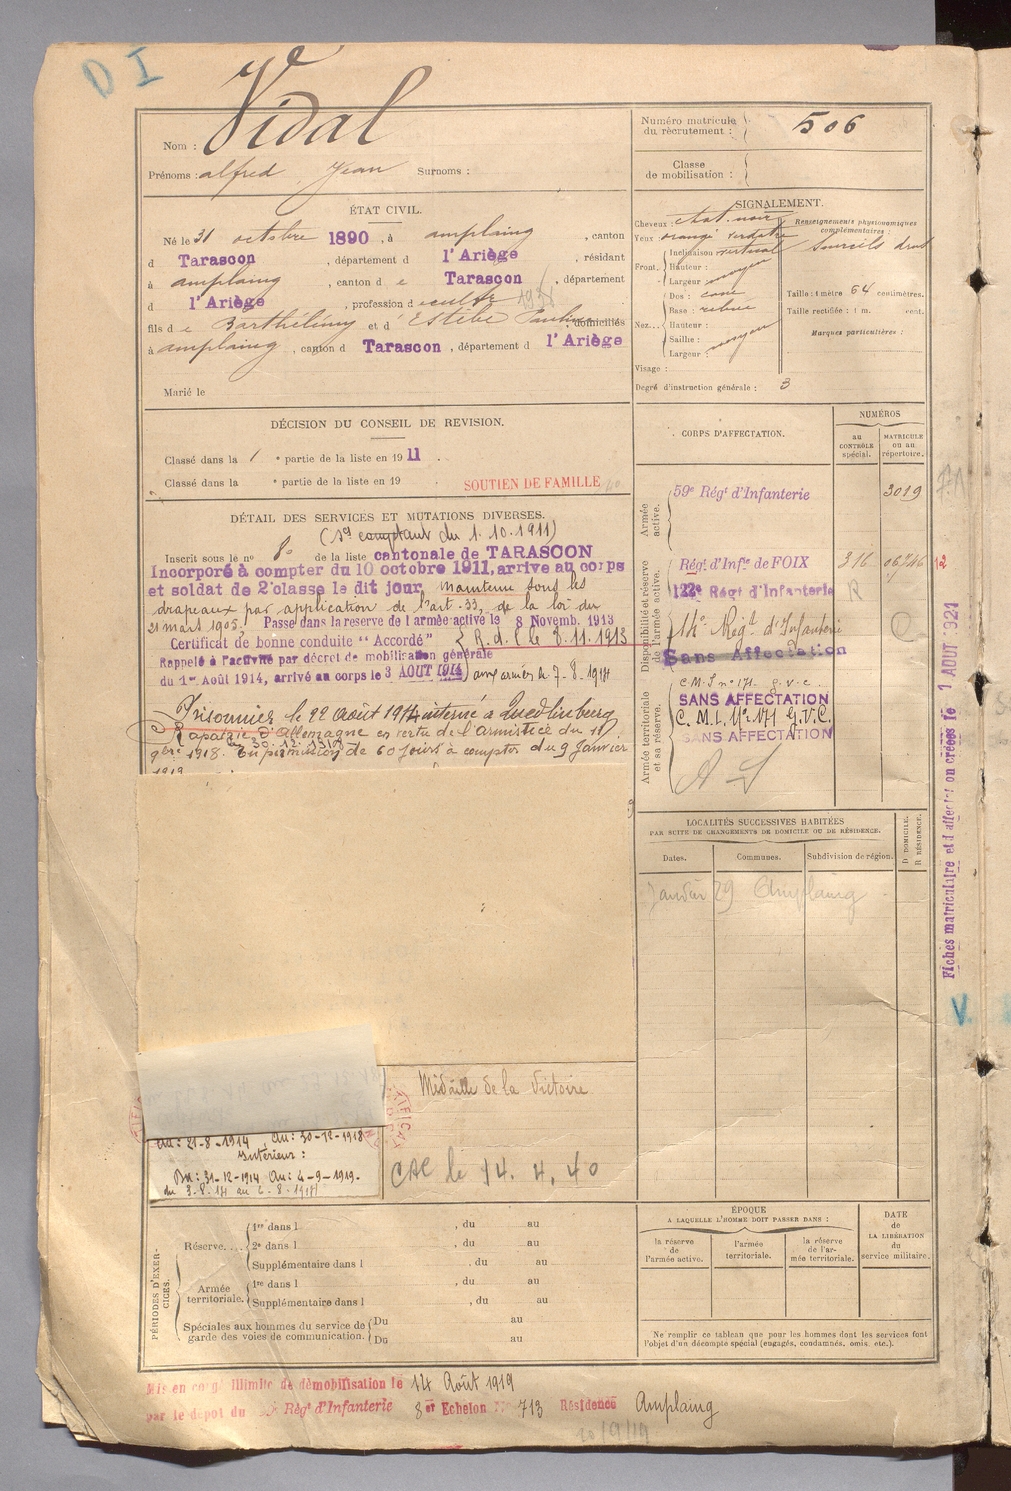 D I
Nom : Vidal
Prénoms : alfred Jean Surnoms :
Numéro matricule du recrutement : 506
Classe de mobilisation :
ÉTAT CIVIL.
Né le 31 octobre 1890, à amplaing, canton
d Tarascon, département d l'Ariège, résidant
à amplaing, canton d e Tarascon, département
d l'Ariège, profession d
fils d e Barthélémy et d' Estèbe, domiciliés
à amplaing, canton d Tarascon, département d l'Ariège
Marié le
SIGNALEMENT.
Cheveux : chat. noir
Yeux orangé verdâtre
Front. Inclinaison vertical
Hauteur :
Largeur moyen
Nez... Dos : cave
Base : relevée
Hauteur :
Saillie : moyen
Largeur :
Visage :
Renseignements physionomiques complémentaires :
Sourcils droits
Taille : 1 mètre 64 centimètres.
Taille rectifiée : 1 m. cent.
Marques particulières :
Degré d'instruction générale : 3
DÉCISION DU CONSEIL DE REVISION.
Classé dans la 1 e partie de la liste en 1911.
Classé dans la e partie de la liste en 19 .
SOUTIEN DE FAMILLE
DÉTAIL DES SERVICES ET MUTATIONS DIVERSES.
(Sce comptant du 1.10.1911)
Inscrit sous le no 80 de la liste cantonale de TARASCON
Incorporé à compter du 10 octobre 1911, arrive au corps
et soldat de 2e classe le dit jour, maintenu sous les
drapeaux par application de l'art. 33, de la loi du
21 mars 1905. Passé dans la réserve de l'armée active le 8 Novemb. 1913
Certificat de bonne conduite "Accordé" R.d.l. le 8.11.1913
Rappelé à l'activité par décret de mobilisation générale
du 1er Août 1914, arrivé au corps le 3 AOUT 1914, aux armées le 7-8-1914
Prisonnier le 22 août 1914 interné à Quedlinburg
Rapatrié d'Allemagne en vertu de l'armistice du 11
9bre 1918. le 30.12.1918 En permission de 60 jours à compter du 9 Janvier
1919
Médaille de la Victoire
CAC le 14.4.40
Du : 21-8-1914, Au : 30-12-1918
Intérieur :
Du : 31-12-1914 Au : 4-9-1919.
du 3-8-14 au 6-8-1914
CORPS D'AFFECTATION.
NUMÉROS
au CONTRÔLE spécial.
MATRICULE ou au répertoire.
Armée active.
59e Régt d'Infanterie 3019
Disponibilité et réserve de l'armée active.
Régt d'Infie de FOIX 316 06746
12
122e Régt d'Infanterie R
14e Régt d'Infanterie
Sans Affectation
Armée territoriale et sa réserve.
C.M.I no 171 g.v.c.
SANS AFFECTATION
C.M.I. No 171 G.V.C.
SANS AFFECTATION
LOCALITÉS SUCCESSIVES HABITÉES
PAR SUITE DE CHANGEMENTS DE DOMICILE OU DE RÉSIDENCE.
Dates. Communes. Subdivision de région. D DOMICILE. R RÉSIDENCE.
Janvier 29 Amplaing
Fiches matriculaire et d'affectation créées le 1 AOUT 1921
V.
PÉRIODES D'EXERCICES.
Réserve.... 1re dans l , du au
2e dans l , du au
Supplémentaire dans l , du au
Armée territoriale. 1re dans l , du au
Supplémentaire dans l , du au
Spéciales aux hommes du service de garde des voies de communication. Du au
Du au
ÉPOQUE
A LAQUELLE L'HOMME DOIT PASSER DANS :
la réserve de l'armée active.
l'armée territoriale.
la réserve de l'armée territoriale.
DATE de LA LIBÉRATION du service militaire.
Ne remplir ce tableau que pour les hommes dont les services font
l'objet d'un décompte spécial (engagés, condamnés, omis, etc.).
Mis en congé illimité de démobilisation le 14 Août 1919
par le dépôt du Régt d'Infanterie 8e Echelon No 713 Résidence Amplaing